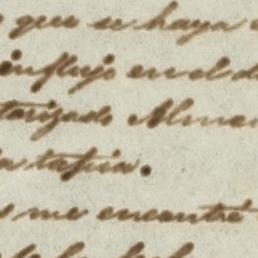 que se haya
influjo en el d
tarizado Almen
a tapia.
me encontré